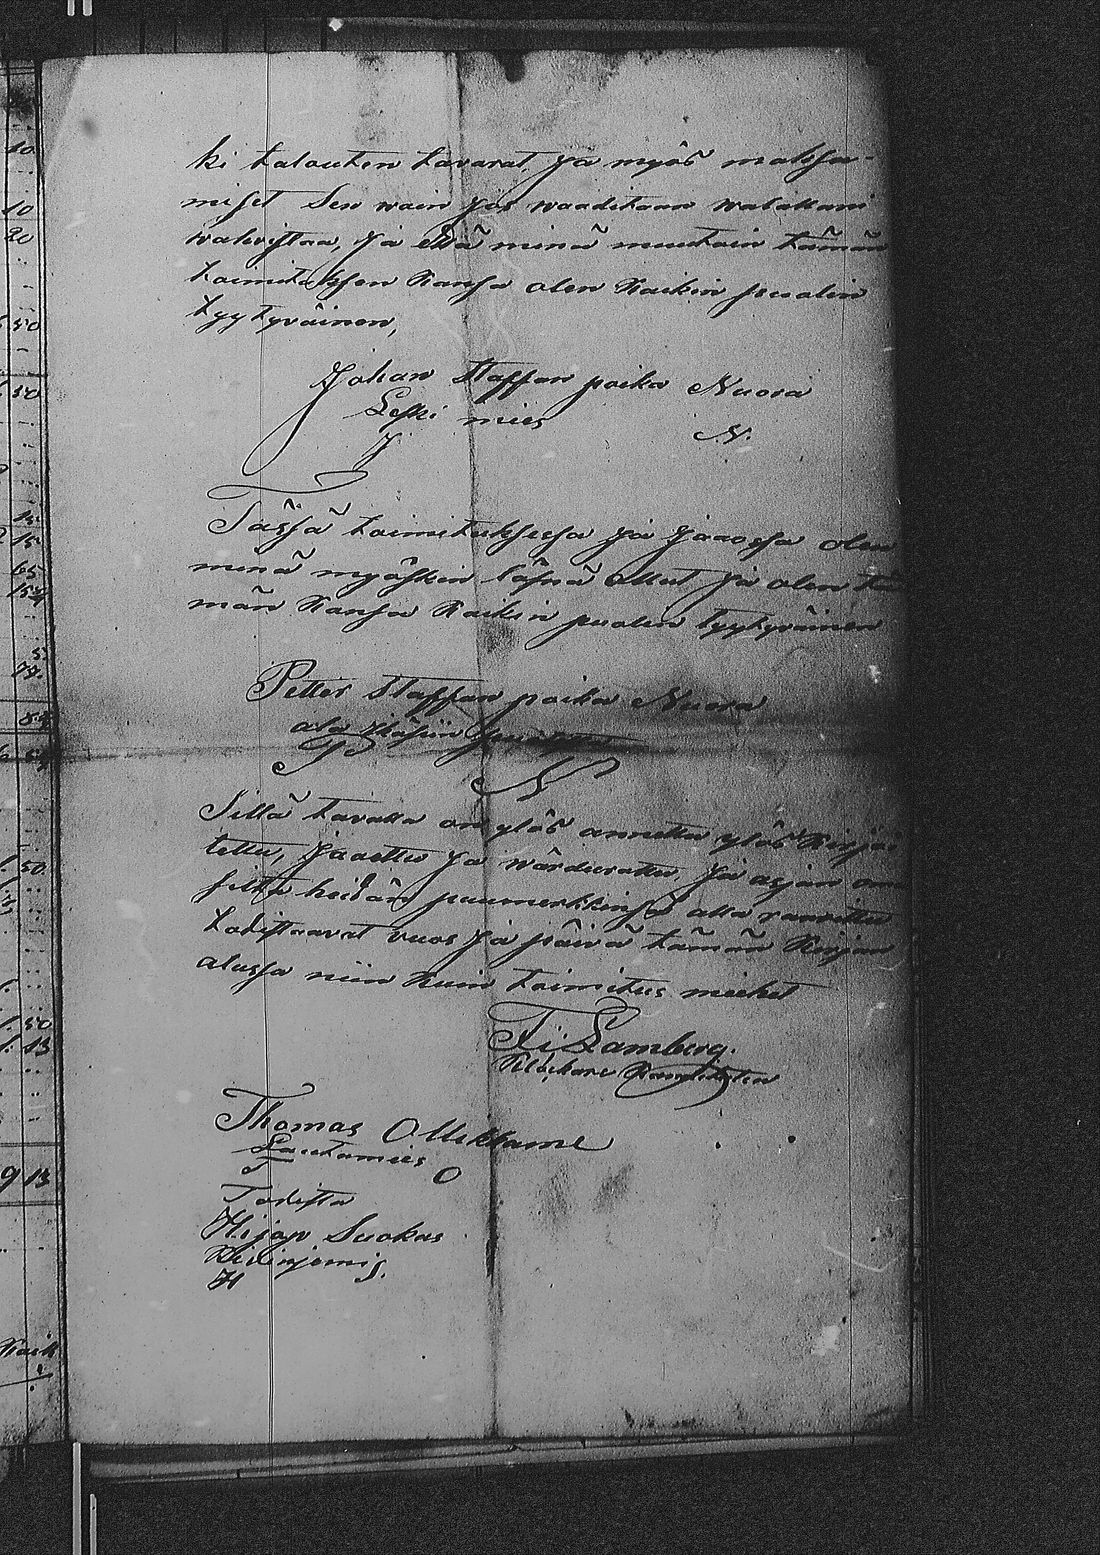 ki talouten tavarat, ja myös maksa-
miset Sen wain jos waaditaan walallani
wahvistaa, ja että minä muutoin tämän
toimituksen Kansa olen Kaikin puolin
tyytyväinen,
Johan Staffan poika Nuora
Leski mies
J N.
Tässä toimituksessa ja jaaossa olen
minä myöskin läsnä ollut ja olen tä
män Kansa Kaikin puolin tyytyväinen
Petter Staffan poika Nuora
P N
Sillä tavalla on ylös annettu ylös Kirjoi
tettu, jaettu ja wärderattu, ja asjan om
heidän puumerkkinsä alla
todistaavat vuos ja päivä tämän Kirjan
alussa niin Kuin toimitus miehet
Lamberg.
Klockare
Thomas Ollikkainen
Lautamies
T O
Todista
Hijop Suokas
H S.
10
10
20
50
50
15
15
65
15
5
50
50
13
9 13
Kaik